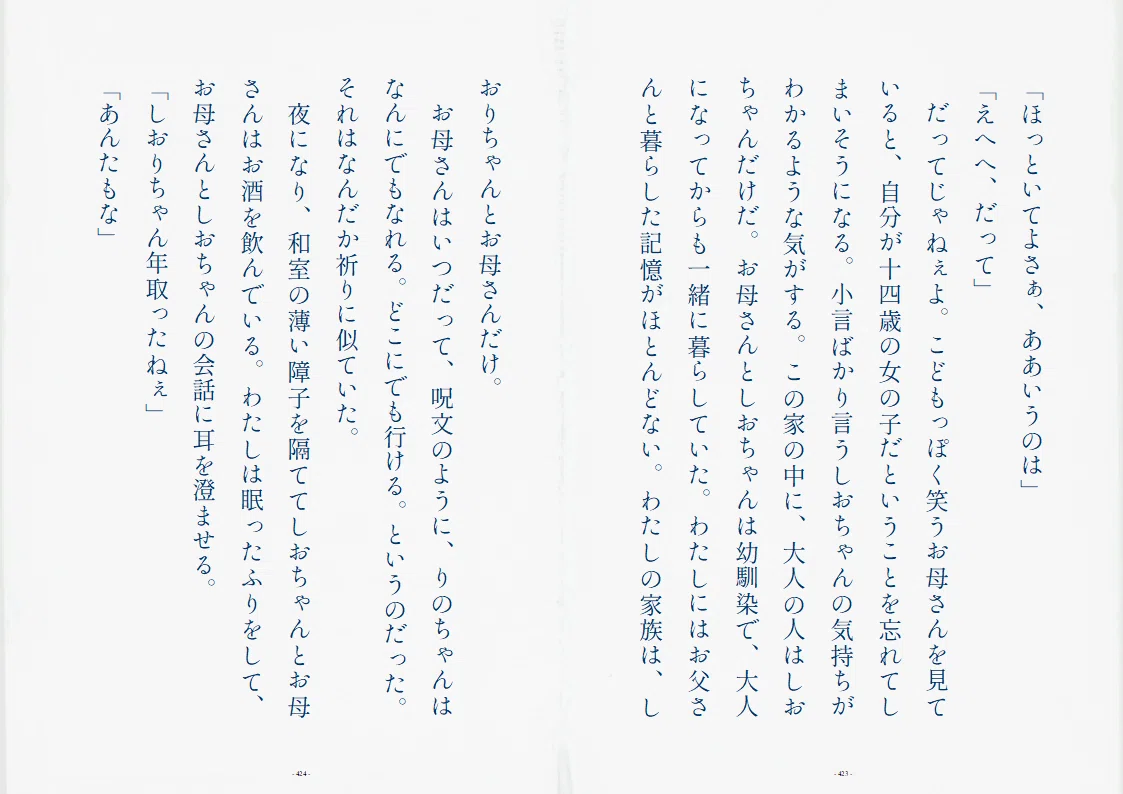 「ほっといてよさぁ、ああいうのは」
「えへへ、だって」
　だってじゃねぇよ。こどもっぽく笑うお母さんを見て
いると、自分が十四歳の女の子だということを忘れてし
まいそうになる。小言ばかり言うしおちゃんの気持ちが
わかるような気がする。この家の中に、大人の人はしお
ちゃんだけだ。お母さんとしおちゃんは幼馴染で、大人
になってからも一緒に暮らしていた。わたしにはお父さ
んと暮らした記憶がほとんどない。わたしの家族は、し
- 423 -
おりちゃんとお母さんだけ。
　お母さんはいつだって、呪文のように、りのちゃんは
なんにでもなれる。どこにでも行ける。というのだった。
それはなんだか祈りに似ていた。
　夜になり、和室の薄い障子を隔ててしおちゃんとお母
さんはお酒を飲んでいる。わたしは眠ったふりをして、
お母さんとしおちゃんの会話に耳を澄ませる。
「しおりちゃん年取ったねぇ」
「あんたもな」
- 424 -